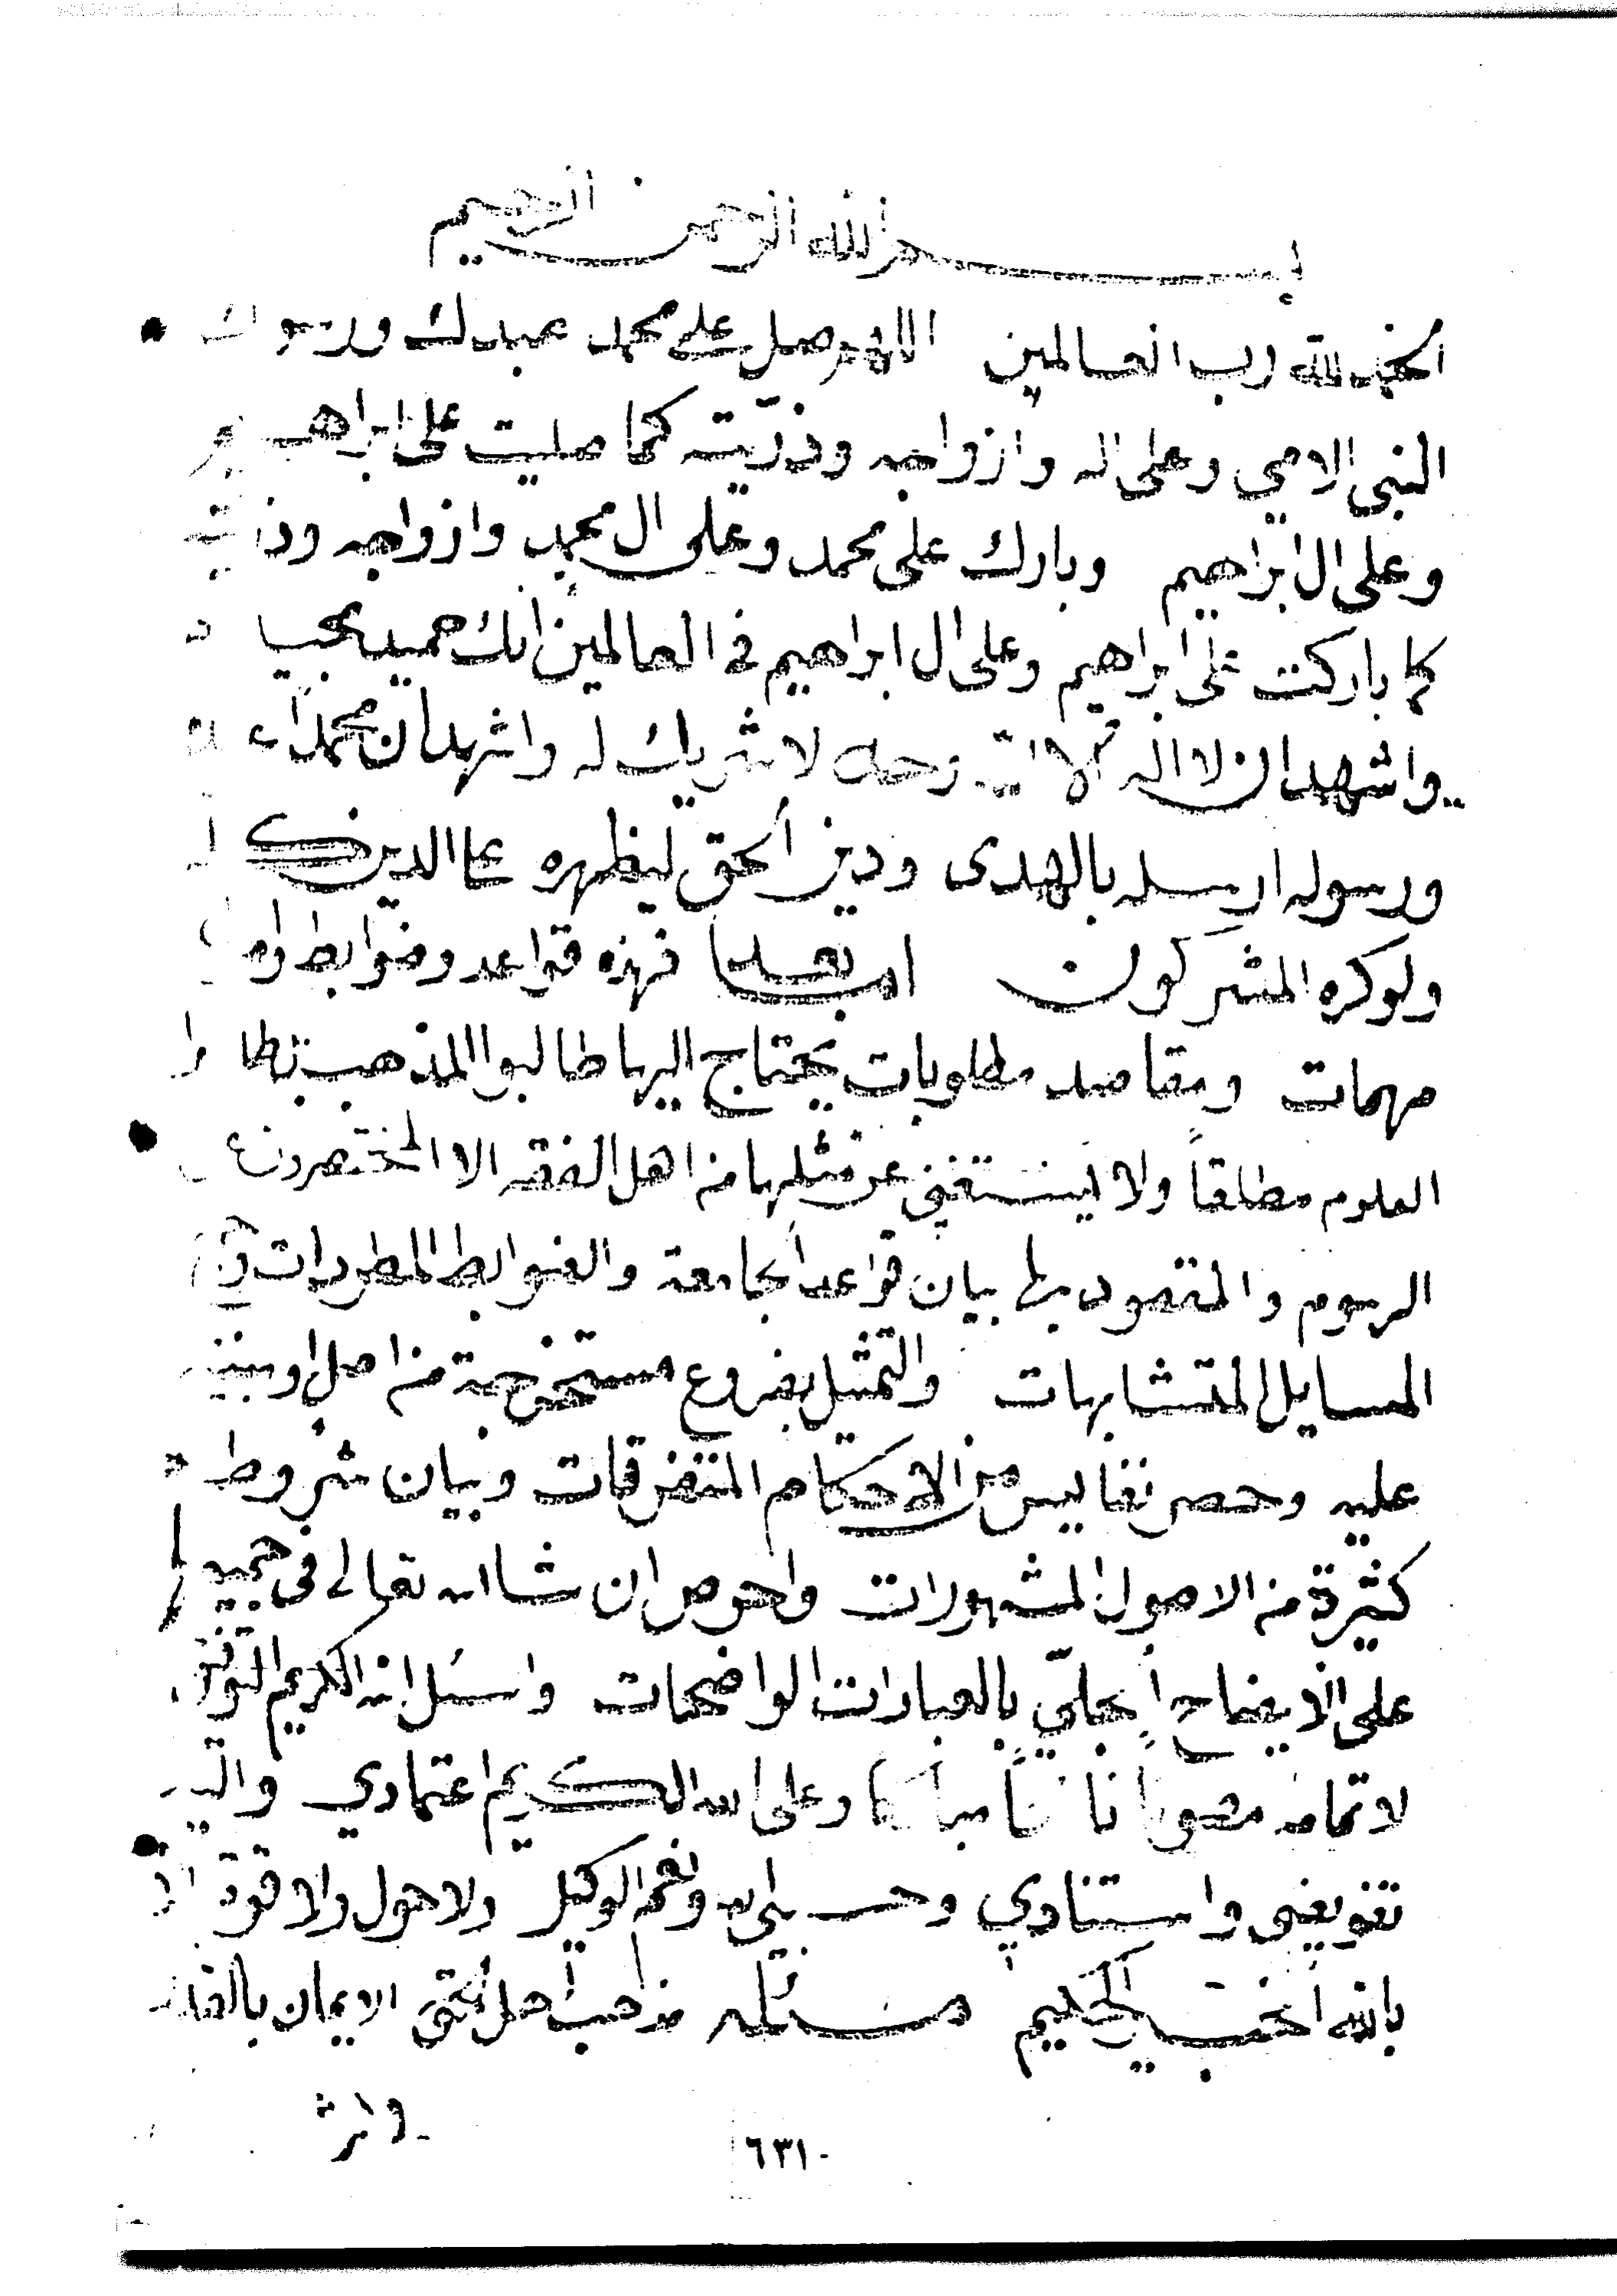 بسم الله الرحمن الرحيم
الحمد لله رب العالمين اللهم صل على محمد عبدك ورسولك
النبي الامي وعلى اله وازواجه وذريته كما صليت على ابراهيم
وعلى ال ابراهيم وبارك على محمد وعلى ال محمد وازواجه وذريته
كما باركت على ابراهيم وعلى ال ابراهيم في العالمين انك حميد مجيد
واشهد ان لا اله الا الله وحده لا شريك له واشهد ان محمدا عبده
ورسوله ارسله بالهدى ودين الحق ليظهره على الدين كله
ولوكره المشركون اما بعد فهذه قواعد وضوابط
مهمات ومقاصد مطلوبات يحتاج اليها طالبوا المذهب بل طالبوا
العلوم مطلقا ولا يستغني عن مثلها من اهل الفقه الا المختصرون على
الرسوم والمقصود بها بيان قواعد الجامعة والضوابط المطردات
المسايل المتشابهات والتمثيل بفروع مستخرجة من اصل او مبنية
عليه وحصر نفايس من الاحكام المتفرقات وبيان شروط
كثيرة من الاصول المشهورات واحرص ان شاالله تعالى في جميعها
على الايضاح الجلي بالعبارات الواضحات واسئل الله الكريم التوفيق
لاتمامه مصونا نافعا مباركا وعلى الله الكريم اعتمادي واليه
تفويضي واستنادي وحسبي الله ونعم الوكيل ولا حول ولا قوة الا
بالله العزيز الحكيم مسئلة مذاهب اهل الحق الايمان بالقدر
٦٣١